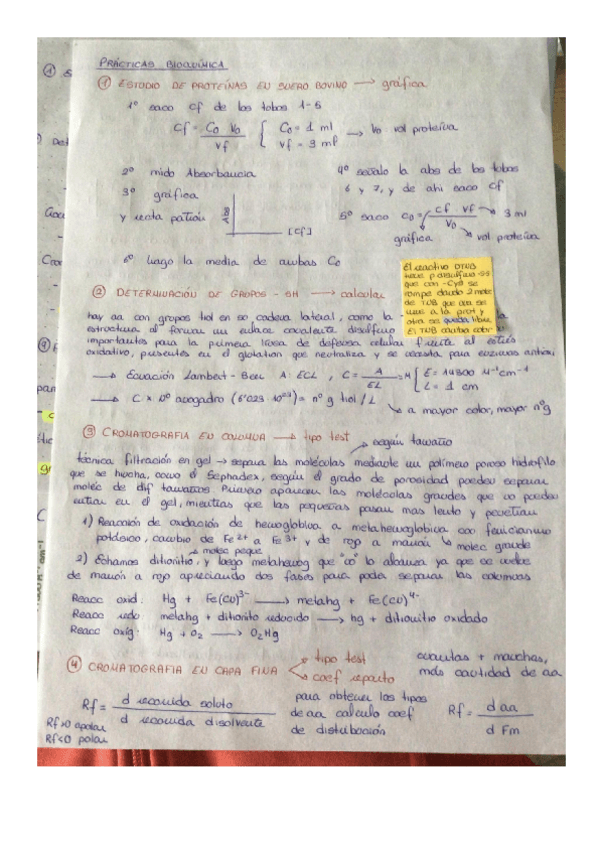 PRÁCTICAS BIOQUÍMICA
① ESTUDIO DE PROTEÍNAS EN SUERO BOVINO → gráfica
1º saco Cf de los tubos 1-5
Cf = Co Vo / Vf { Co = 1 ml → Vo vol proteína
Vf = 3 ml
2º mido Absorbancia
3º gráfica
y recta patrón
[Cf]
4º señalo la abs de los tubos
6 y 7, y de ahí saco Cf
5º saco Co = Cf Vf / Vo → 3 ml
gráfica vol proteína
6º hago la media de ambas Co
El reactivo DTNB
tiene p disulfuro -SS
que con -Cys se
rompe dando 2 molec
de TNB que una se
une a la prot y
otra se queda libre
El TNB cambia color
② DETERMINACIÓN DE GRUPOS -SH → calcular
hay aa con grupos tiol en su cadena lateral, como la
la
estructura al formar un enlace covalente disulfuro
importantes para la primera línea de defensa celular frente al estrés
oxidativo, presentes en el glutation que neutraliza y se necesita para enzimas antioxi
→ Ecuación Lambert-Beer A = ECL, C = A / EL = M { E = 14300 M⁻¹cm⁻¹
L = 1 cm
→ C × nº avogadro (6'023·10²³) = nº g tiol / L
a mayor color, mayor nºg
③ CROMATOGRAFIA EN COLUMNA → tipo test
según tamaño
técnica filtración en gel → separa las moléculas mediante un polímero poroso hidrófilo
que se hincha, como el Sephadex, según el grado de porosidad pueden separar
molec de dif tamaños. Primero aparecen las moléculas grandes que no pueden
entrar en el gel, mientras que las pequeñas pasan mas lento y penetran
1) Reacción de oxidación de hemoglobina a metahemoglobina con ferricianuro
potásico, cambio de Fe²⁺ a Fe³⁺ y de rojo a marrón molec grande
molec peque
2) Echamos ditionito, y luego metahemog que "co" lo alcanza ya que se vuelve
de marrón a rojo apreciando dos fases para poder separar las columnas
Reacc oxid: Hg + Fe(CN)³⁻ → metahg + Fe(CN)⁴⁻
Reacc redo: metahg + ditionito reducido → hg + ditionito oxidado
Reacc oxig: Hg + O₂ → O₂Hg
④ CROMATOGRAFIA EN CAPA FINA
tipo test
coef reparto
cuantas + manchas,
más cantidad de aa
Rf = d recorrida soluto / d recorrida disolvente
Rf>0 apolar
Rf<0 polar
para obtener los tipos
de aa calculo coef
de distribución
Rf = d aa / d Fm